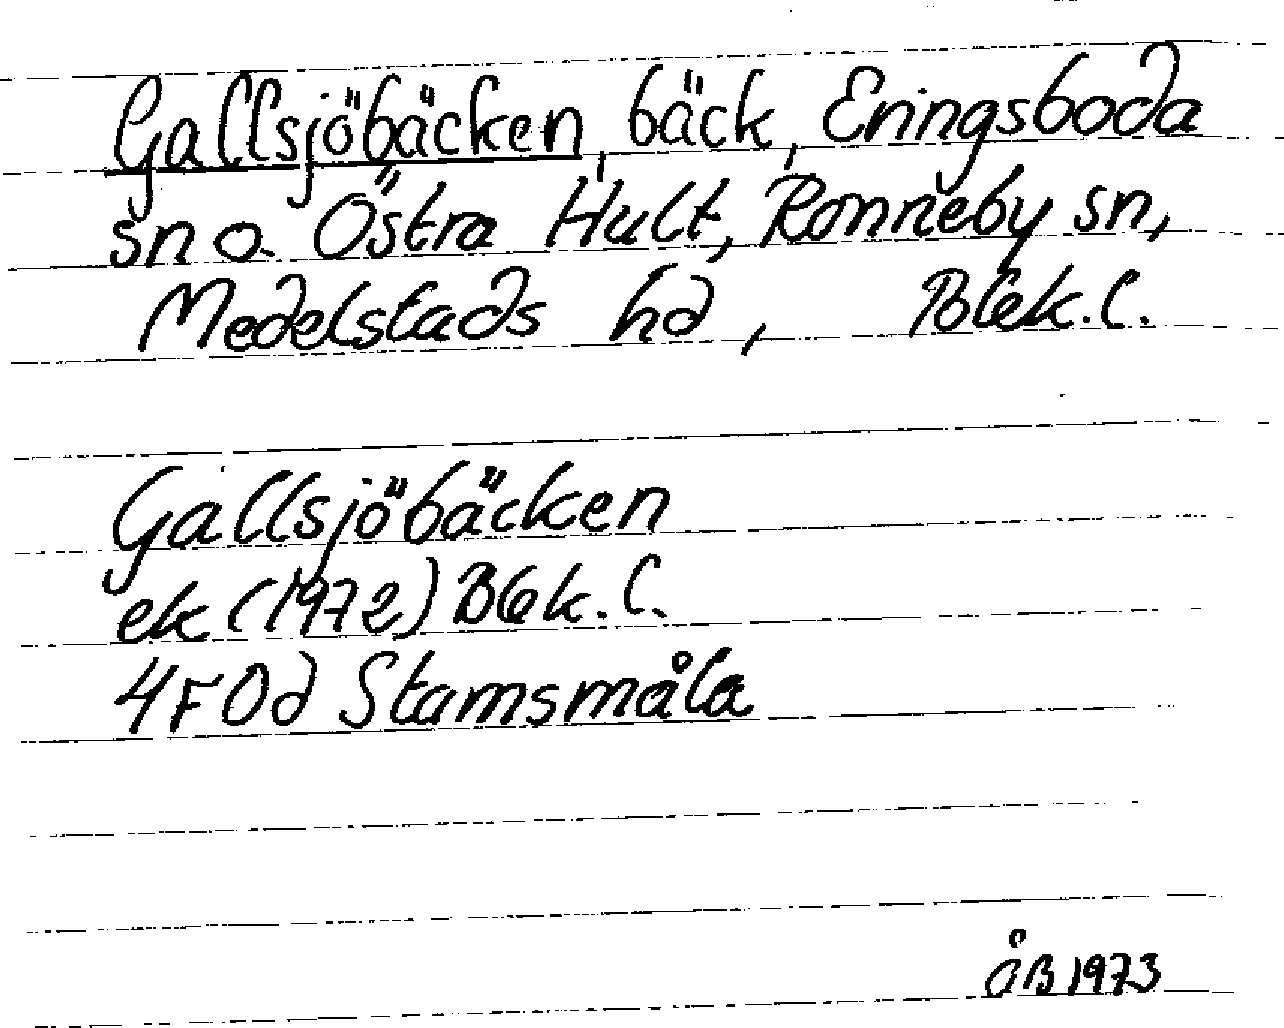 Gallsjöbäcken, bäck, Eringsboda
sn o. Östra Hult, Ronneby sn,
Medelstads hd, Blek. l.
Gallsjöbäcken
ek (1972) Blek. l.
4F0d Stamsmåla
ÅB 1973